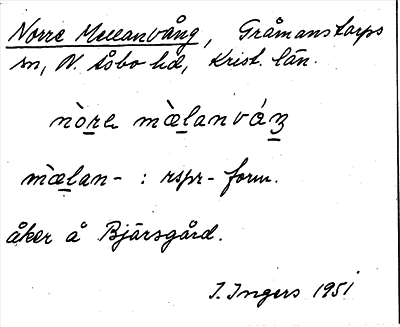 Norre Mellanvång, Gråmanstorps
sn, N. Åsbo hd, Krist. län.
nòre mæ̀lanváŋ
mæ̀lan- : rspr-form.
åker å Bjärsgård.
I. Ingers 1951